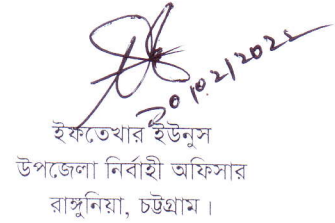 ২০/০২/২০২২
ইফতেখার ইউনুস
উপজেলা নির্বাহী অফিসার
রাঙ্গুনিয়া, চট্টগ্রাম।